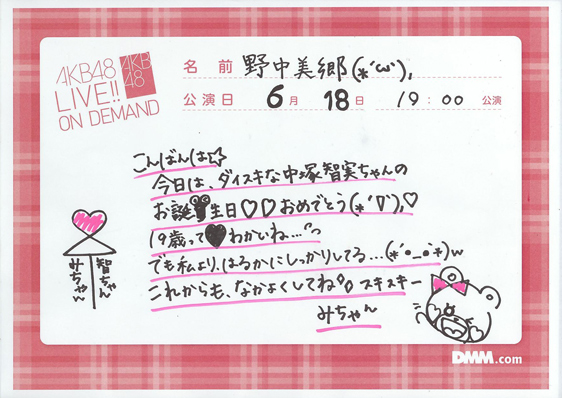 AKB48
LIVE!!
ON DEMAND
AKB
48
名前 野中美郷(*´ω`),
公演日 6月 18日 19:00 公演
こんばんは☆
今日は、ダイスキな中塚智実ちゃんの
お誕生日♡♡おめでとう(*´∇`),♡
19歳って♥わかいね…
でも私より、はるかにしっかりしてる…(*´•_•`*)w
これからも、なかよくしてね。スキスキー
みちゃん
智ちゃん
みちゃん
DMM.com